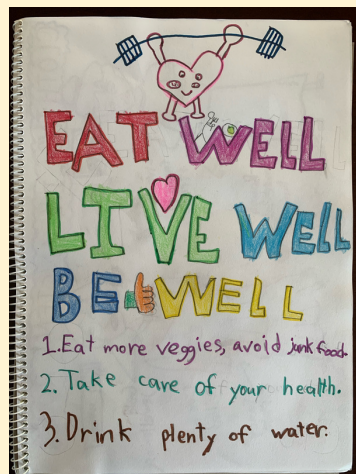 EAT WELL
LIVE WELL
BE WELL
1. Eat more veggies, avoid junk food.
2. Take care of your health.
3. Drink plenty of water.